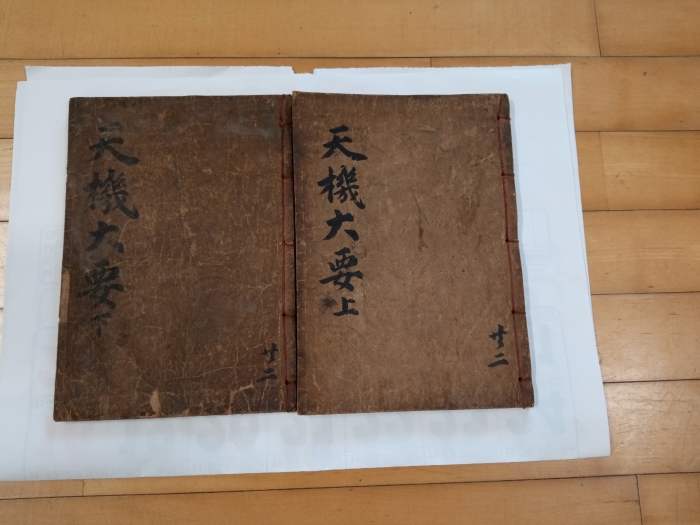 天機大要上
廿二
天機大要下
廿二